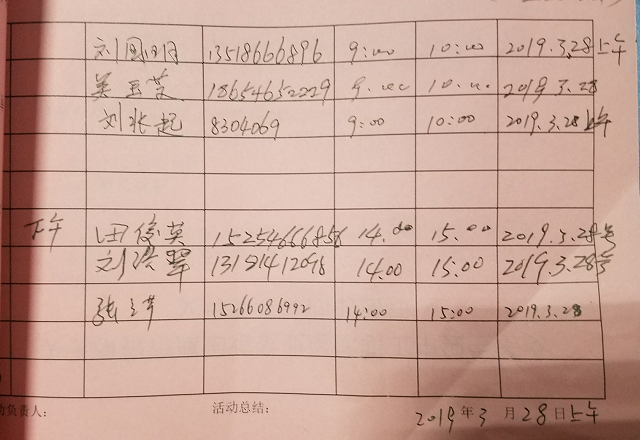 刘国明 13518666896 9:00 10:00 2019.3.28上午
吴玉芝 18654652229 9.00 10.00 2019 3.28
刘兴起 8304069 9:00 10:00 2019.3.28上午
下午 田俊英 15254666856 14.00 15.00 2019.3.28号
刘洪翠 14.00 15:00 2019.3.28号
15266086992 14:00 15:00 2019.3.28
负责人: 活动总结: 2019年3月28日上午